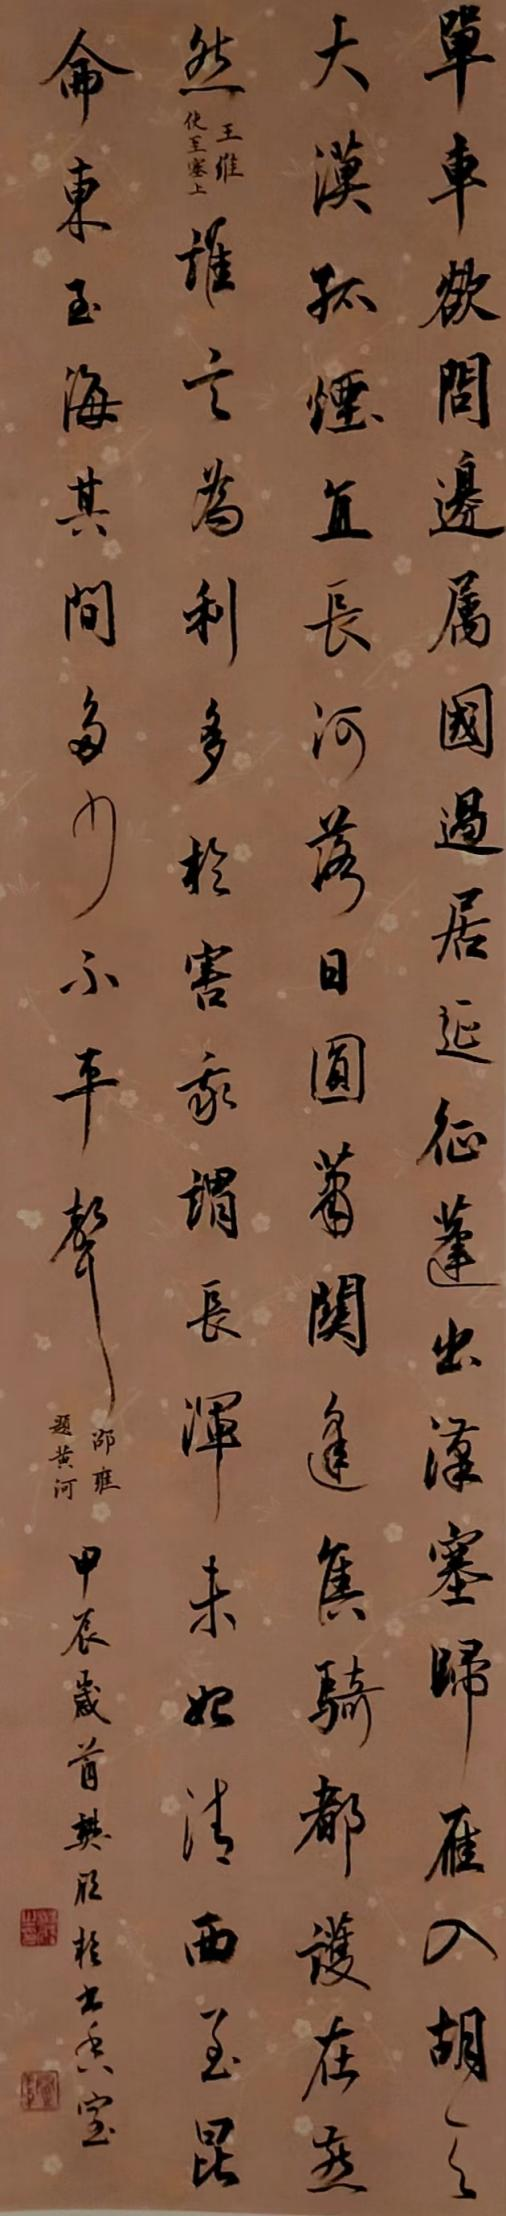 單車欲問邊屬國過居延征蓬出漢塞歸雁入胡天
大漠孤煙直長河落日圓蕭關逢候騎都護在燕
然
王維
使至塞上
誰言為利多於害我謂長渾未始清西至昆
侖東至海其間多少不平聲
邵雍
題黃河
甲辰歲首樊於香室